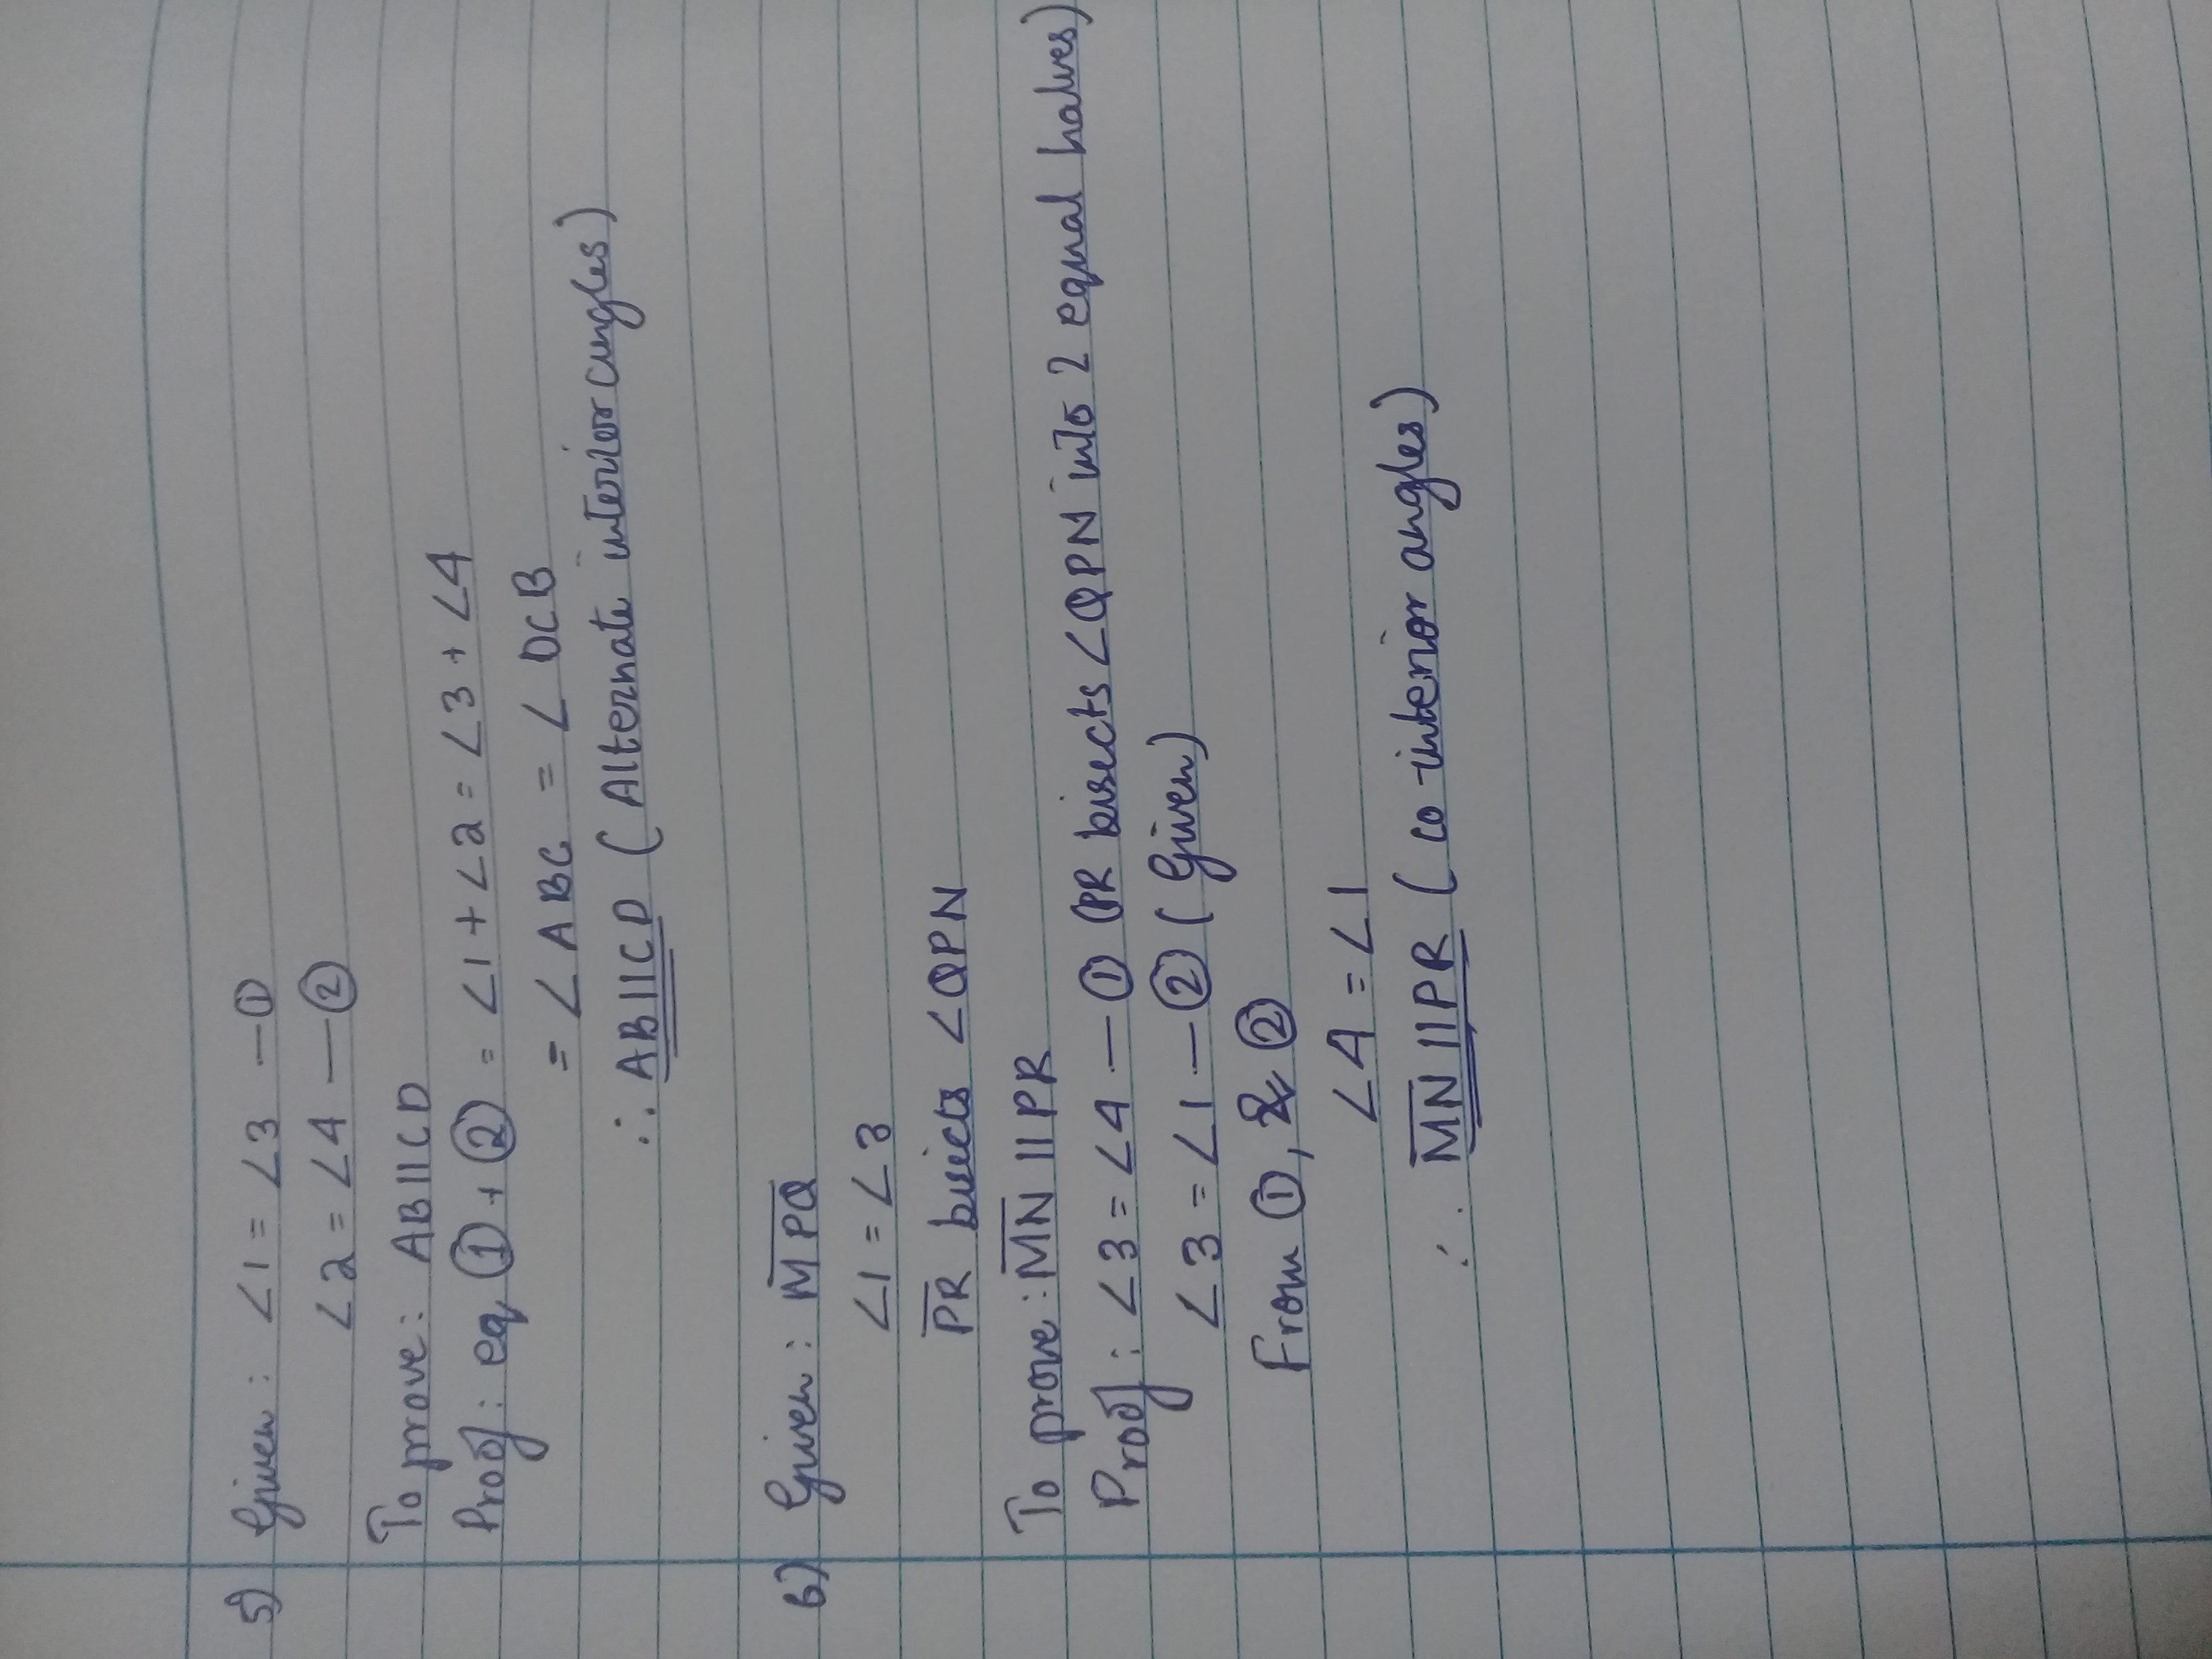 5) Given: ∠1 = ∠3 —①
∠2 = ∠4 —②
To prove: AB||CD
Proof: eq ① + ② = ∠1 + ∠2 = ∠3 + ∠4
= ∠ABC = ∠DCB
∴ AB||CD (Alternate interior angles)
6) Given: M̅P̅Q̅
∠1 = ∠3
P̅R̅ bisects ∠QPN
To prove: M̅N̅ || PR
Proof: ∠3 = ∠4 —① (PR bisects ∠QPN into 2 equal halves)
∠3 = ∠1 —② (Given)
From ①, & ②
∠4 = ∠1
∴ M̅N̅ || PR (co-interior angles)